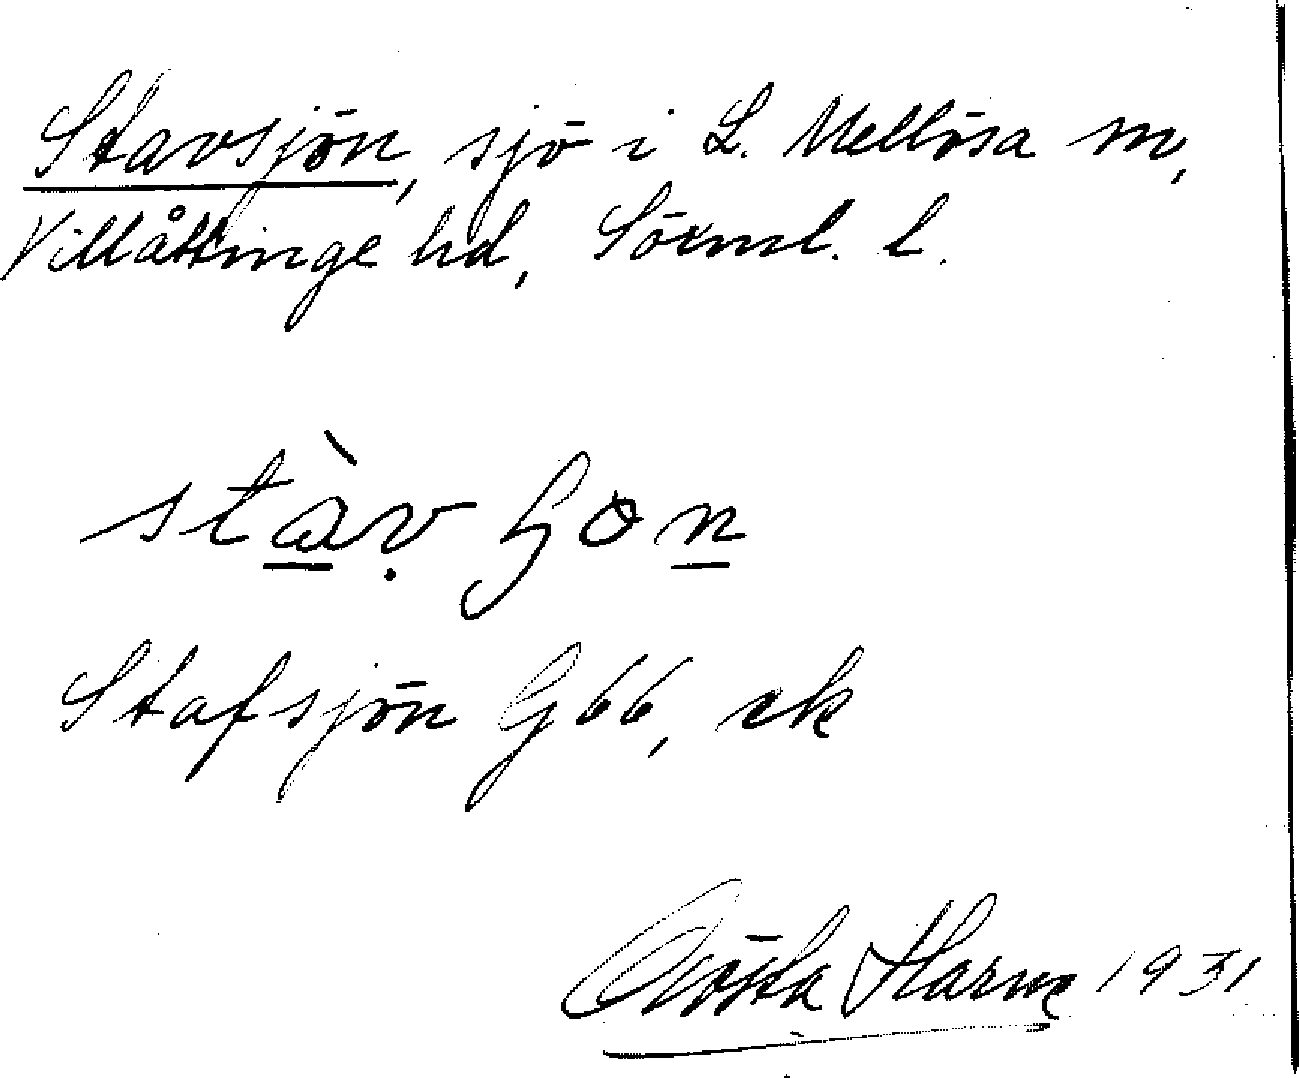 Stavsjön, sjö i L. Mellösa sn,
Villåttinge hd, Sörml. l.
Stafsjön G 66, ek
Gösta Harm 1931